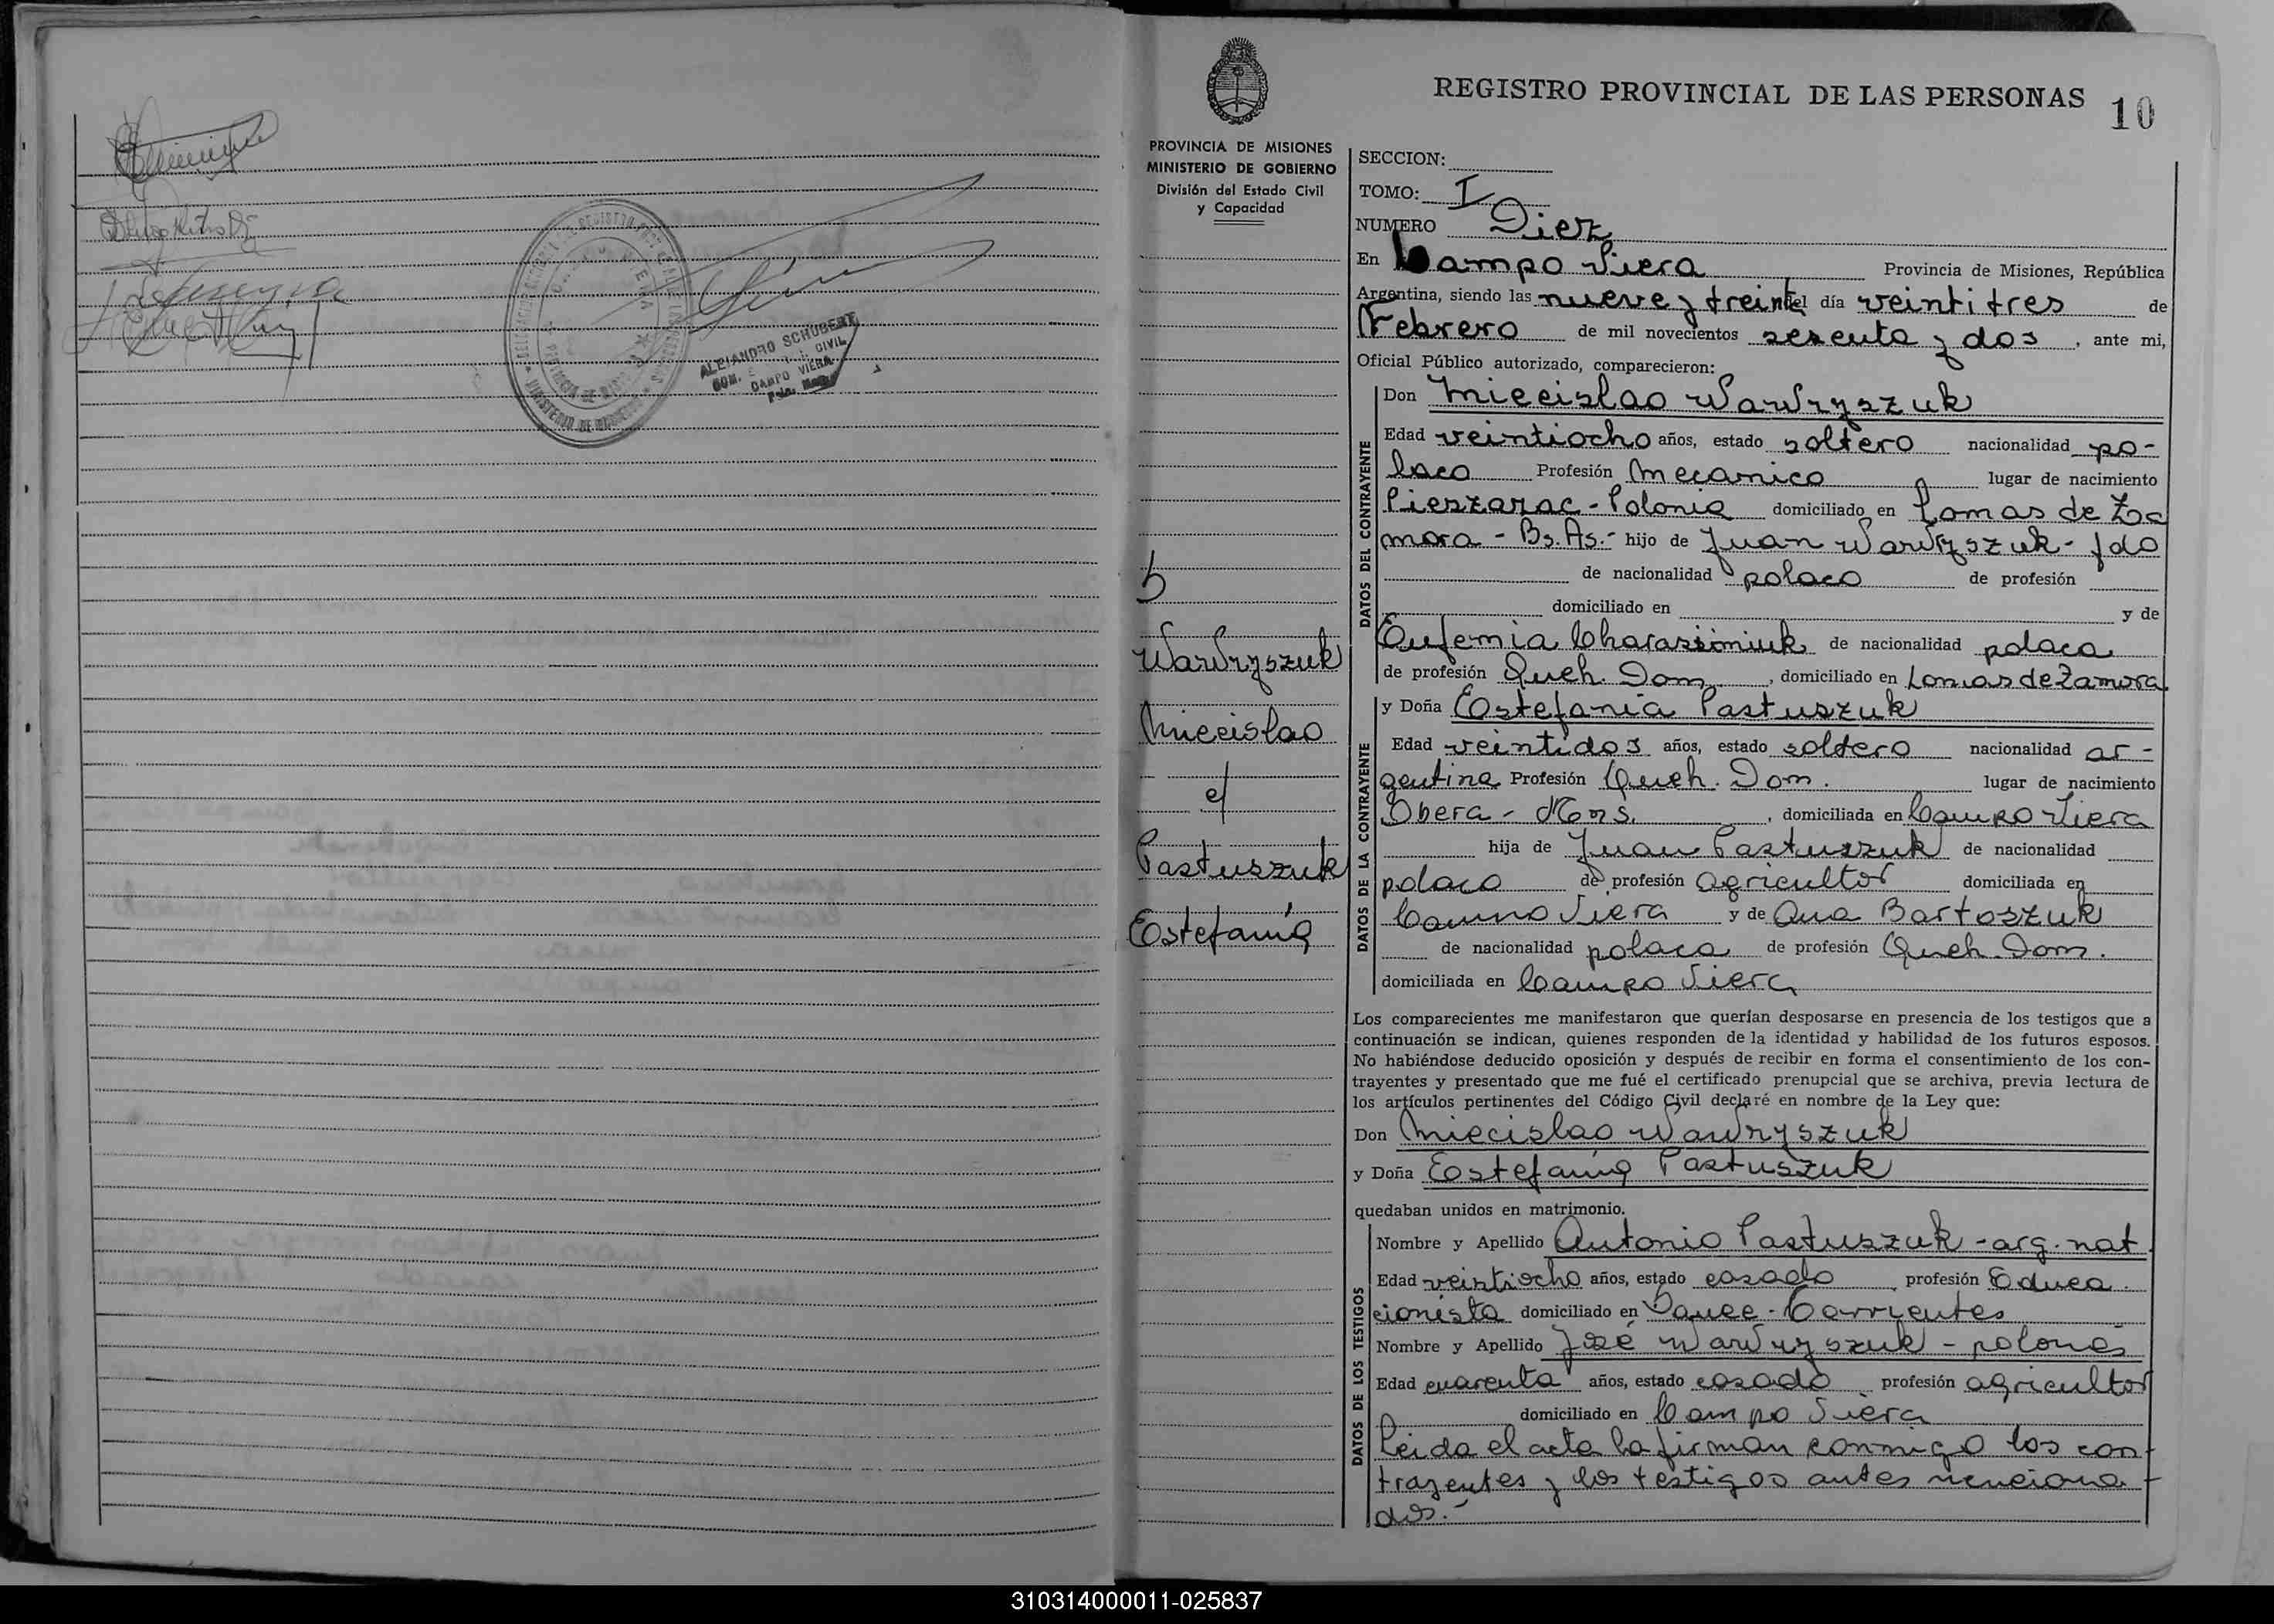 ALEJANDRO SCHUBERT
CAMPO VIERA
REGISTRO PROVINCIAL DE LAS PERSONAS
10
PROVINCIA DE MISIONES
MINISTERIO DE GOBIERNO
División del Estado Civil
y Capacidad
SECCION:
TOMO: I
NUMERO Diez
En Campo Viera Provincia de Misiones, República
Argentina, siendo las nueve y treinta del día veintitres de
Febrero de mil novecientos sesenta y dos, ante mi,
Oficial Público autorizado, comparecieron:
Don Miecislao Wawryszuk
DATOS DEL CONTRAYENTE
Edad veintiocho años, estado soltero nacionalidad po-
laco Profesión Mecanico lugar de nacimiento
Polonia domiciliado en Lomas de Za
mora - Bs. As.- hijo de Juan Wawryszuk - fdo
de nacionalidad polaco de profesión
domiciliado en y de
Eufemia de nacionalidad polaca
de profesión Queh. Dom., domiciliado en Lomas de Zamora
y Doña Estefania Pastuszuk
DATOS DE LA CONTRAYENTE
Edad veintidos años, estado soltero nacionalidad ar-
gentina Profesión Queh. Dom. lugar de nacimiento
Obera - Mons., domiciliada en Campo Viera
hija de Juan Pastuszuk de nacionalidad
polaco de profesión agricultor domiciliada en
Campo Viera y de Ana Bartoszuk
de nacionalidad polaca de profesión Queh. Dom.
domiciliada en Campo Viera
Los comparecientes me manifestaron que querían desposarse en presencia de los testigos que a
continuación se indican, quienes responden de la identidad y habilidad de los futuros esposos.
No habiéndose deducido oposición y después de recibir en forma el consentimiento de los con-
trayentes y presentado que me fué el certificado prenupcial que se archiva, previa lectura de
los artículos pertinentes del Código Civil declaré en nombre de la Ley que:
Don Miecislao Wawryszuk
y Doña Estefania Pastuszuk
quedaban unidos en matrimonio.
DATOS DE LOS TESTIGOS
Nombre y Apellido Antonio Pastuszuk - arg. nat.
Edad veintiocho años, estado casado profesión Educa-
cionista domiciliado en Corrientes
Nombre y Apellido José Wawryszuk - polones
Edad cuarenta años, estado casado profesión agricultor
domiciliado en Campo Viera
Leida el acta la firman conmigo los con-
trayentes y los testigos antes menciona-
dos.-
Wawryszuk
Miecislao
c/
Pastuszuk
Estefania
310314000011-025837